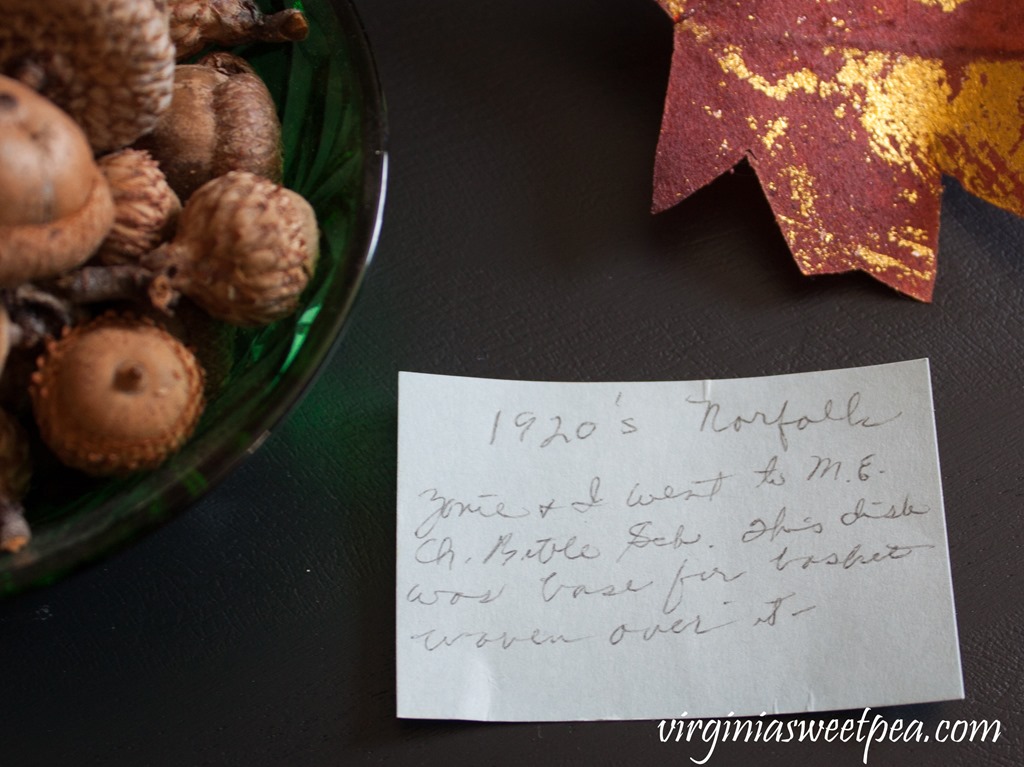 1920's Norfolk
Zonie + I went to M.E.
Ch. Bible Sch. This dish
was base for basket
woven over it-
virginiasweetpea.com